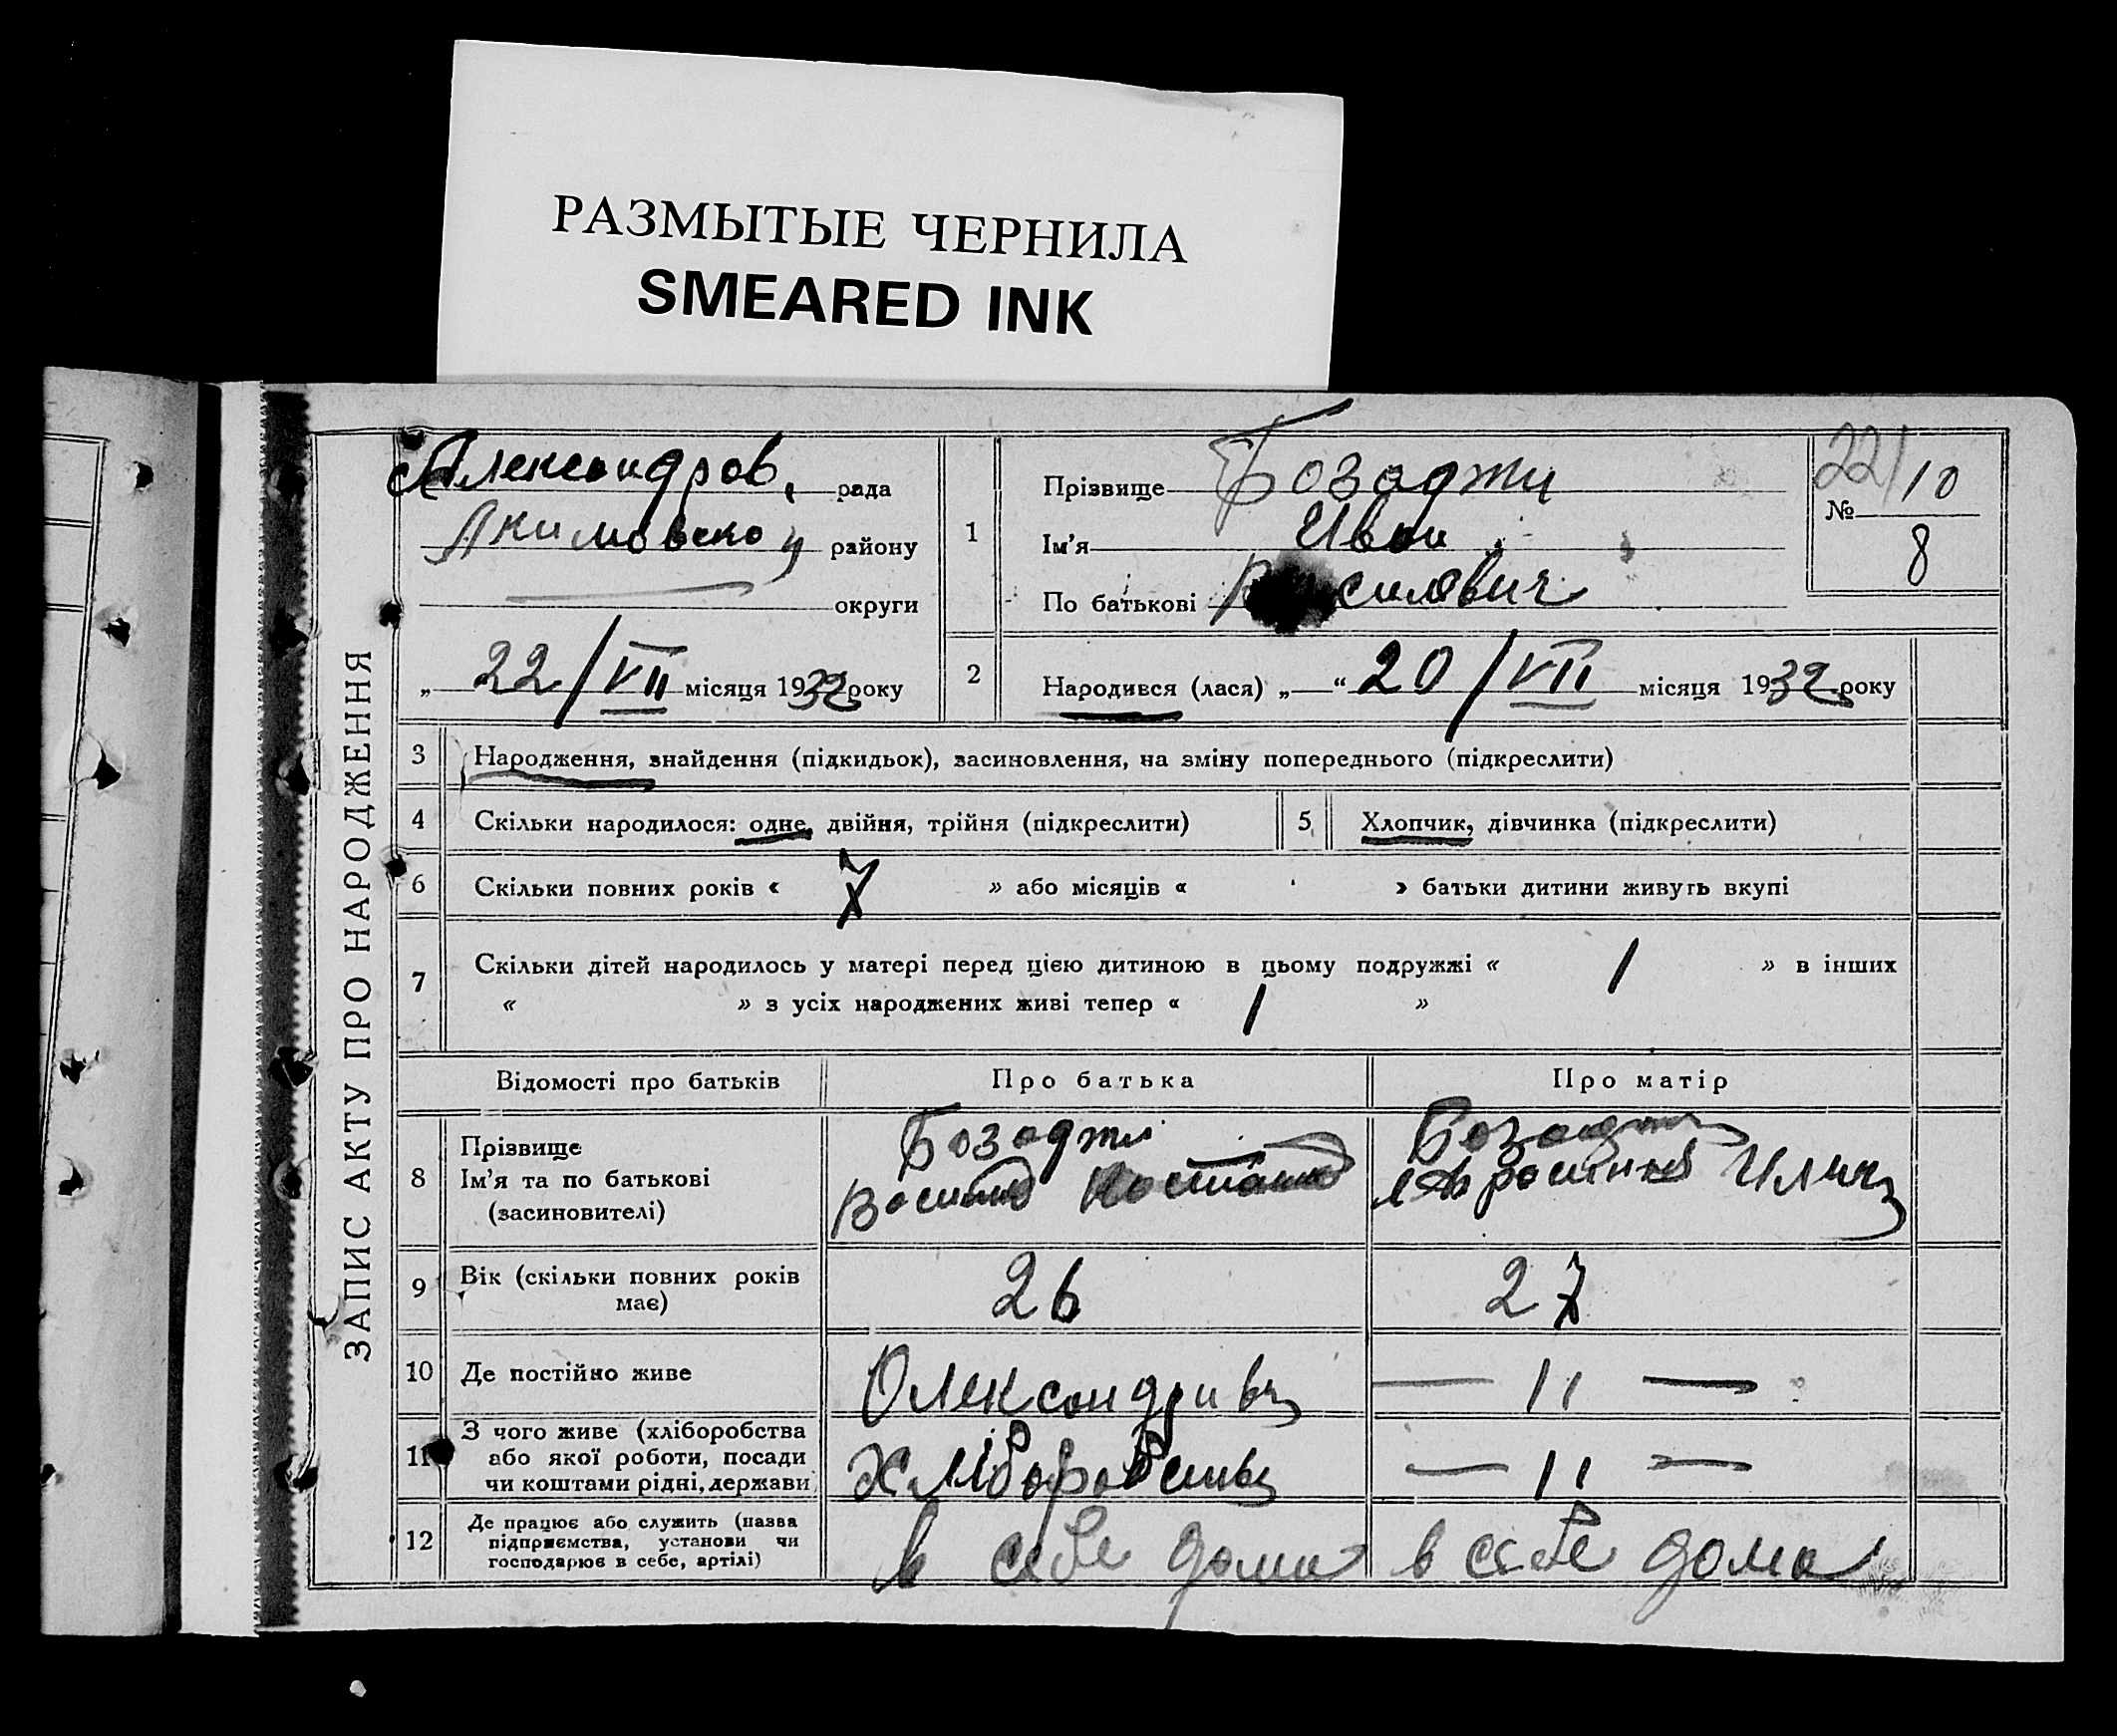 РАЗМЫТЫЕ ЧЕРНИЛА
SMEARED INK
ЗАПИС АКТУ ПРО НАРОДЖЕННЯ
Александров, рада
Якимовско району
округи
„ 22/VII місяця 1932 року
1
Прізвище Бозаджи
Ім'я Иван
По батькові Василович
22/10
№
8
2
Народився (лася) „ “ 20/VII місяця 1932 року
3 Народження, знайдення (підкидьок), засиновлення, на зміну попереднього (підкреслити)
4 Скільки народилося: одне, двійня, трійня (підкреслити) 5 Хлопчик, дівчинка (підкреслити)
6 Скільки повних років « 7 » або місяців « » батьки дитини живуть вкупі
7 Скільки дітей народилось у матері перед цією дитиною в цьому подружжі « 1 » в інших
« » з усіх народжених живі тепер « 1 »
Відомості про батьків Про батька Про матір
8 Прізвище
Ім'я та по батькові
(засиновителі)
Бозаджи
Бозаджи
9 Вік (скільки повних років
має)
26 27
10 Де постійно живе Олександривц — 11 —
11 З чого живе (хліборобства
або якої роботи, посади
чи коштами рідні, держави)
— 11 —
12 Де працює або служить (назва
підприємства, установи чи
господарює в себе, артілі)
в себе дома в себе дома